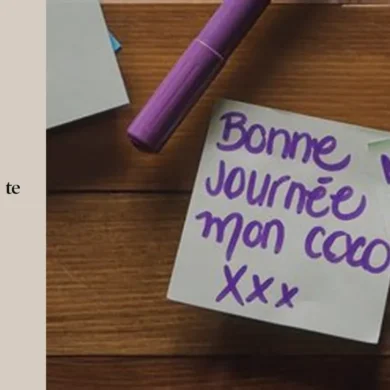 te
Bonne
journée
mon coco
Xxx